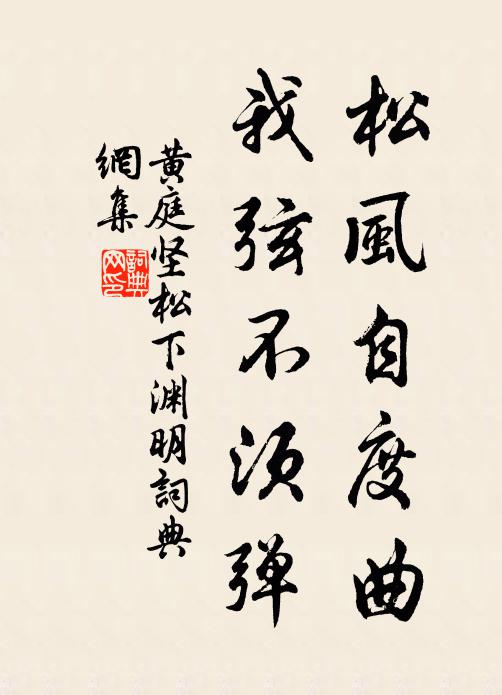 松風自度曲
我弦不须弹
黄庭坚松下渊明詞典
網集
詞典
网印